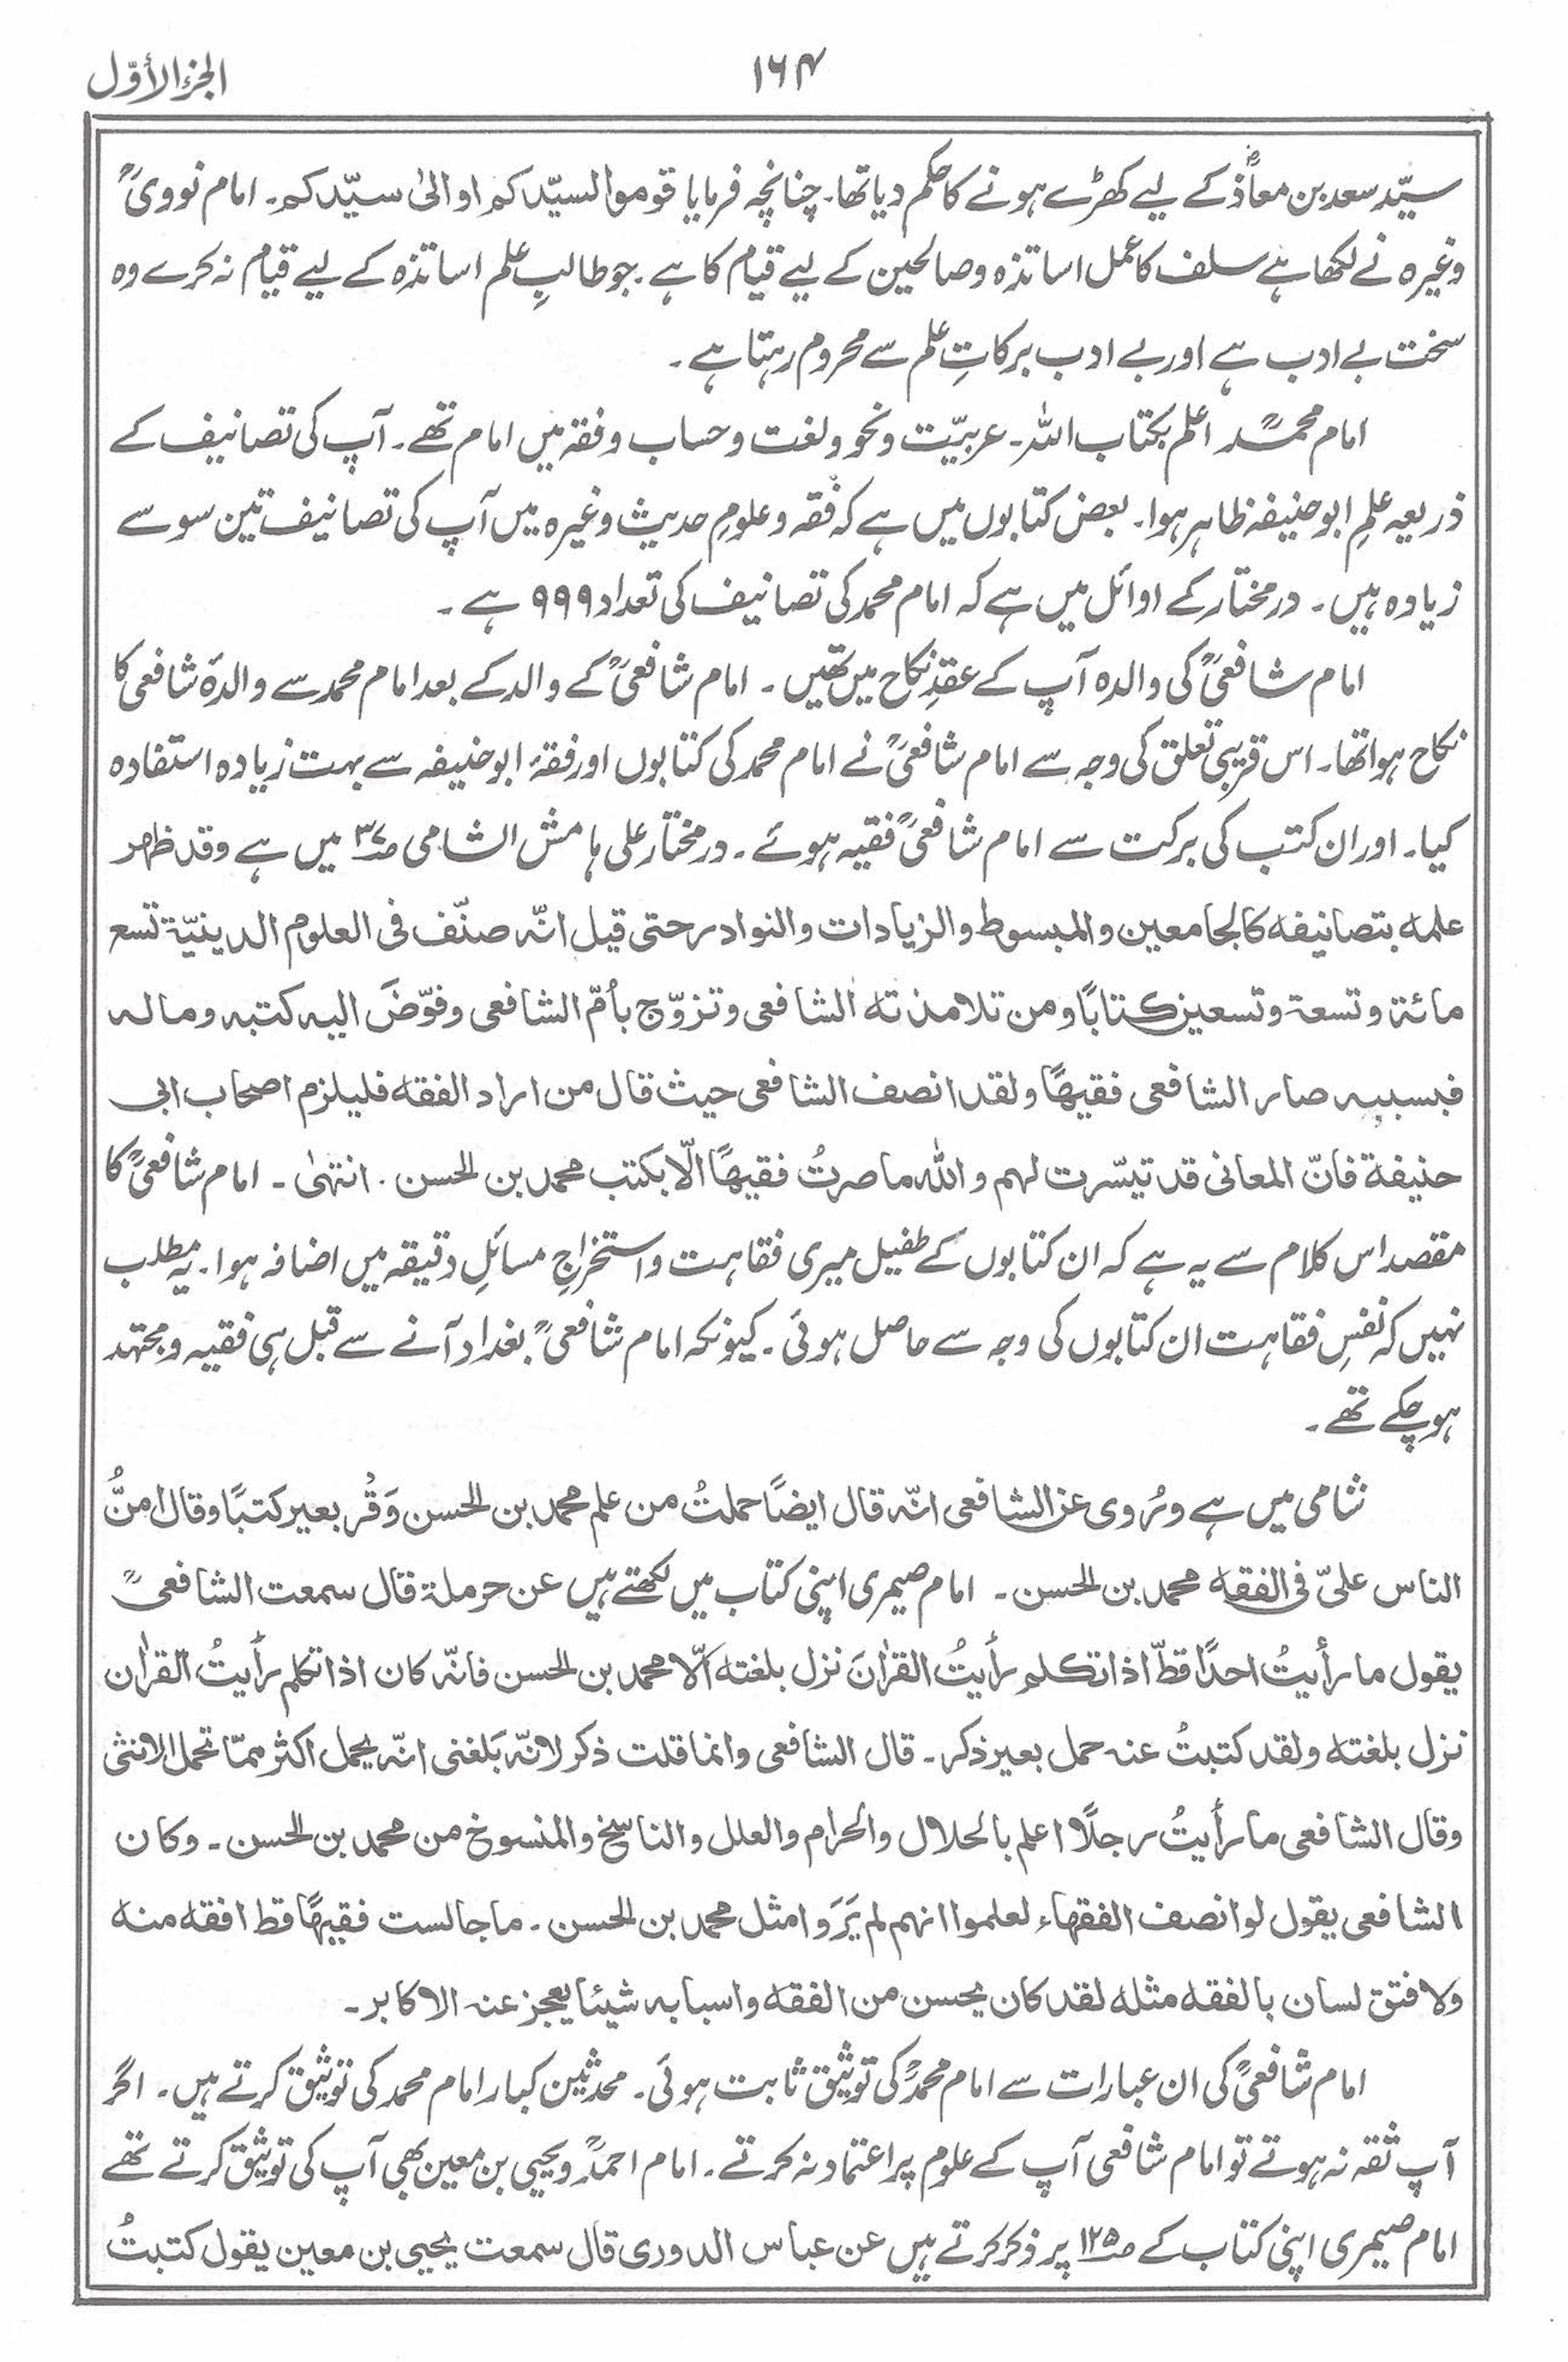 الجزء الأوّل
۱۶۴
سیّد سعد بن معاذؓ کے لیے کھڑے ہونے کا حکم دیا تھا۔ چنانچہ فرمایا قوموا لسیّدکم او الیٰ سیّدکم۔ امام نوویؒ
وغیرہ نے لکھا ہے سلف کا عمل اساتذہ و صالحین کے لیے قیام کا ہے۔ جو طالبِ علم اساتذہ کے لیے قیام نہ کرے وہ
سخت بے ادب ہے اور بے ادب برکاتِ علم سے محروم رہتا ہے۔
امام محمدؒ اعلم بکتاب اللہ۔ عربیّت و نحو و لغت و حساب و فقہ میں امام تھے۔ آپ کی تصانیف کے
ذریعہ علمِ ابوحنیفہ ظاہر ہوا۔ بعض کتابوں میں ہے کہ فقہ و علومِ حدیث وغیرہ میں آپ کی تصانیف تین سو سے
زیادہ ہیں۔ درمختار کے اوائل میں ہے کہ امام محمد کی تصانیف کی تعداد ۹۹۹ ہے۔
امام شافعیؒ کی والدہ آپ کے عقدِ نکاح میں تھیں۔ امام شافعیؒ کے والد کے بعد امام محمد سے والدۂ شافعی کا
نکاح ہوا تھا۔ اس قریبی تعلق کی وجہ سے امام شافعیؒ نے امام محمد کی کتابوں اور فقۂ ابوحنیفہ سے بہت زیادہ استفادہ
کیا۔ اور ان کتب کی برکت سے امام شافعیؒ فقیہ ہوئے۔ درمختار علی ہامش الشامی صـ۳۷ میں ہے وقد ظھر
علمہ بتصانیفہ کالجامعین والمبسوط والزیادات والنوادر حتی قیل انّہ صنّف فی العلوم الدینیّۃ تسع
مائۃ وتسعۃ وتسعین کتابًا ومن تلامذتہ الشافعی وتزوّج بأمّ الشافعی وفوّضَ الیہ کتبہ ومالہ
فبسببہ صار الشافعی فقیھًا ولقد انصف الشافعی حیث قال من اراد الفقہ فلیلزم اصحاب ابی
حنیفۃ فانّ المعانی قد تیسّرت لہم واللہ ما صرتُ فقیھًا الّا بکتب محمد بن الحسن۔ انتہیٰ۔ امام شافعیؒ کا
مقصد اس کلام سے یہ ہے کہ ان کتابوں کے طفیل میری فقاہت و استخراجِ مسائلِ دقیقہ میں اضافہ ہوا۔ یہ مطلب
نہیں کہ نفسِ فقاہت ان کتابوں کی وجہ سے حاصل ہوئی۔ کیونکہ امام شافعیؒ بغداد آنے سے قبل ہی فقیہ و مجتہد
ہو چکے تھے۔
شامی میں ہے ورُوی عن الشافعی انّہ قال ایضًا حملتُ من علم محمد بن الحسن وَقْر بعیر کتبًا وقال امنُّ
الناس علیّ فی الفقہ محمد بن الحسن۔ امام صیمری اپنی کتاب میں لکھتے ہیں عن حرملۃ قال سمعت الشافعیؒ
یقول ما رأیتُ احدًا قطّ اذا تکلم رأیتُ القراٰنَ نزل بلغتہ الّا محمد بن الحسن فانّہ کان اذا تکلم رأیتُ القراٰن
نزل بلغتہ ولقد کتبتُ عنہ حمل بعیر ذکر۔ قال الشافعی وانما قلت ذکر لانّہ بَلغنی انّہ یحمل اکثر ممّا تحمل الانثی
وقال الشافعی ما رأیتُ رجلًا اعلم بالحلال والحرام والعلل والناسخ والمنسوخ من محمد بن الحسن۔ وکان
الشافعی یقول لو انصف الفقہاء لعلموا انہم لم یَرَوا مثل محمد بن الحسن۔ ما جالست فقیہًا قط افقہ منہ
ولا فتق لسان بالفقہ مثلہ لقد کان یحسن من الفقہ واسبابہ شیئا یعجز عنہ الاکابر۔
امام شافعیؒ کی ان عبارات سے امام محمدؒ کی توثیق ثابت ہوئی۔ محدثین کبار امام محمد کی توثیق کرتے ہیں۔ اگر
آپ ثقہ نہ ہوتے تو امام شافعی آپ کے علوم پر اعتماد نہ کرتے۔ امام احمدؒ و یحیی بن معین بھی آپ کی توثیق کرتے تھے
امام صیمری اپنی کتاب کے صـ۱۲۵ پر ذکر کرتے ہیں عن عباس الدوری قال سمعت یحیی بن معین یقول کتبتُ